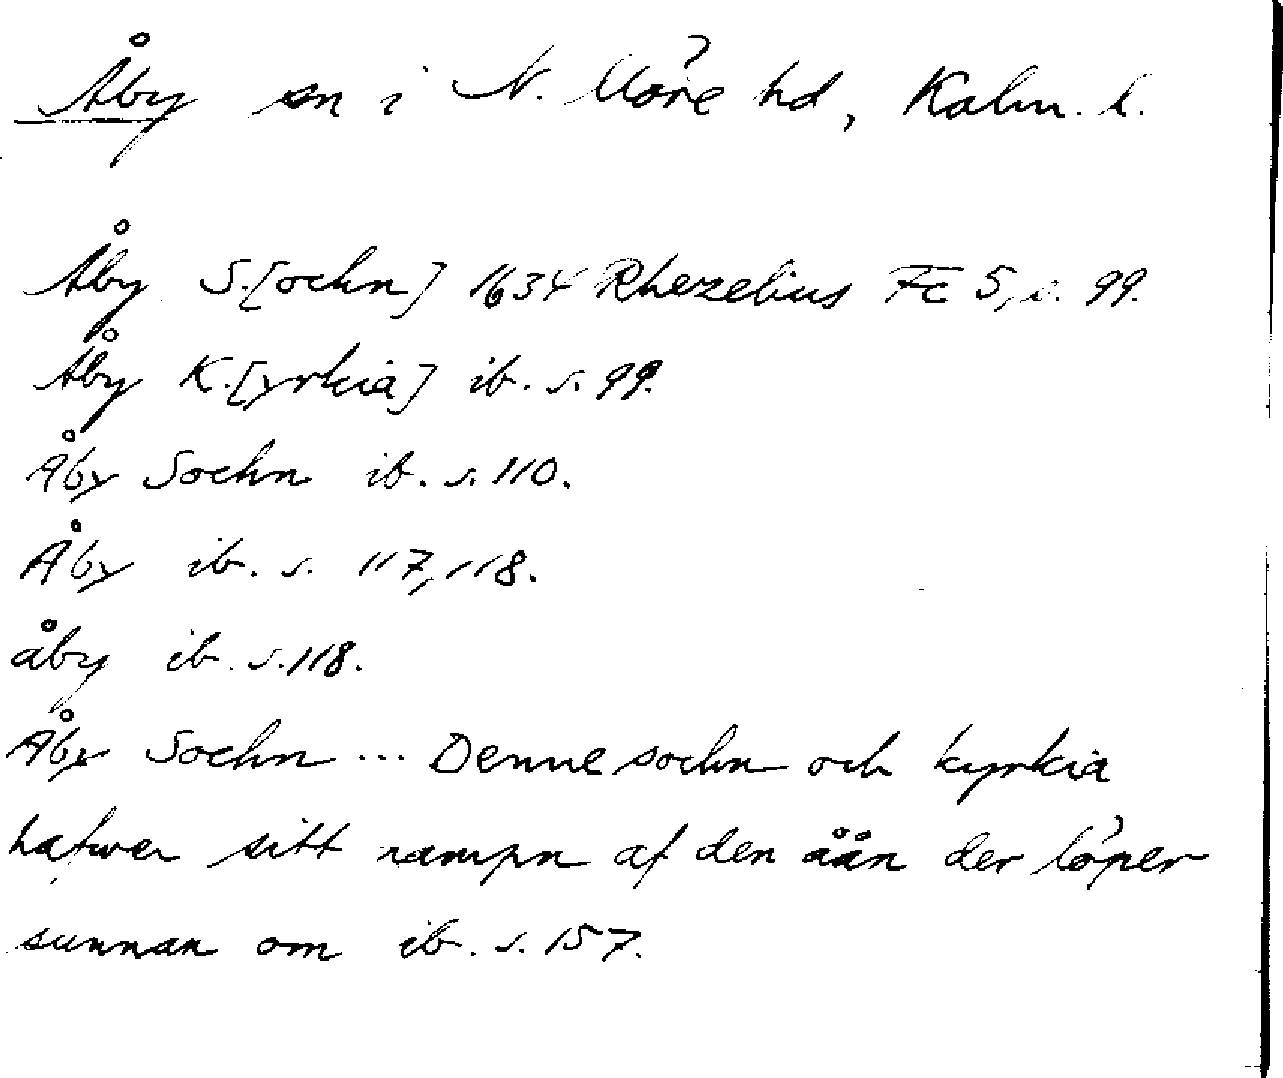 Åby sn i N. Möre hd, Kalm. l.
Åby S.[ochn] 1634 Rhezelius Fc 5, s. 99.
Åby K.[yrkia] ib. s. 99.
Åby Sochn ib. s. 110.
Åby ib. s. 117, 118.
åby ib. s. 118.
Åby Sochn ... Denne sochn och kyrkia
hafwer sitt nampn af den åån der löper
sunnan om ib. s. 157.